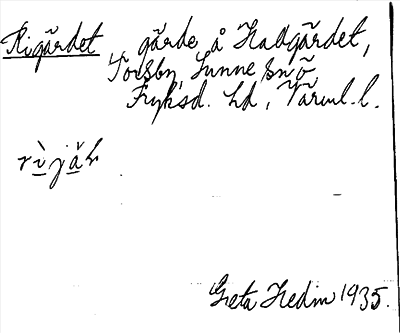 Rigärdet gärde å Hallgärdet,
Torsby, Sunne sn o,
Fryksd. hd, Värml. l.
rìjäḷ
Greta Hedin 1935.